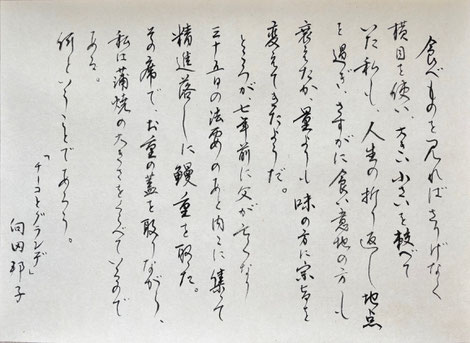 食べものを見ればさりげなく
横目を使い、大きい小さいを較べて
いた私も、人生の折り返し地点
を過ぎ、さすがに食い意地の方も
衰えたか、量よりも味の方に宗旨を
変えてきたようだ。
ところが七年前に父が亡くなり
三十五日の法要のあと内々に集って
精進落しに鰻重を取った。
その席で、お重の蓋を取りながら、
私は蒲焼の大きさをくらべているので
ある。
何ということであろう。
「チーコとグランデ」
向田邦子